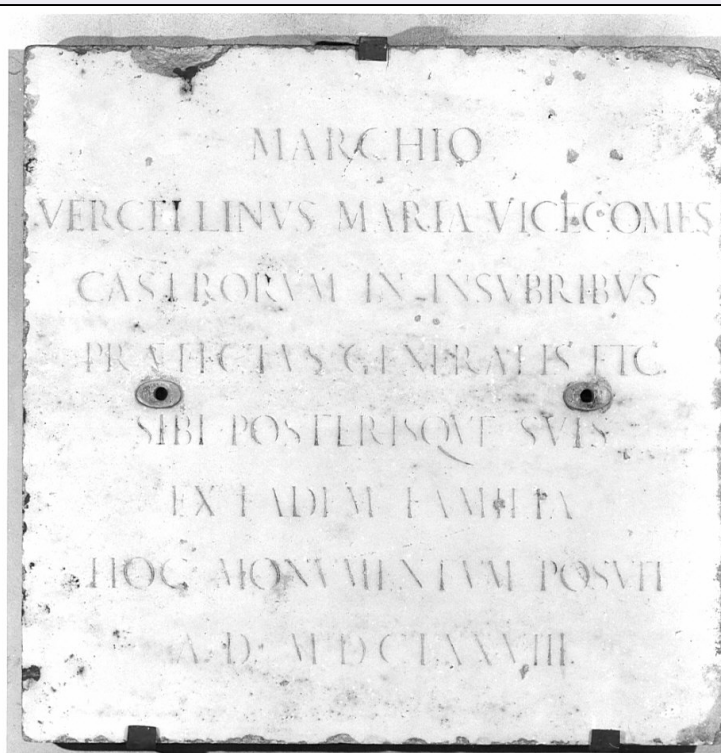 MARCHIO
VERCELLINVS MARIA VICECOMES
CASTRORVM IN INSVBRIBVS
PRAEFECTVS GENERALIS ETC.
SIBI POSTERISQVE SVIS
EX EADEM FAMILIA
HOC MONVMENTVM POSVIT
A. D. MDCLXXVIII.